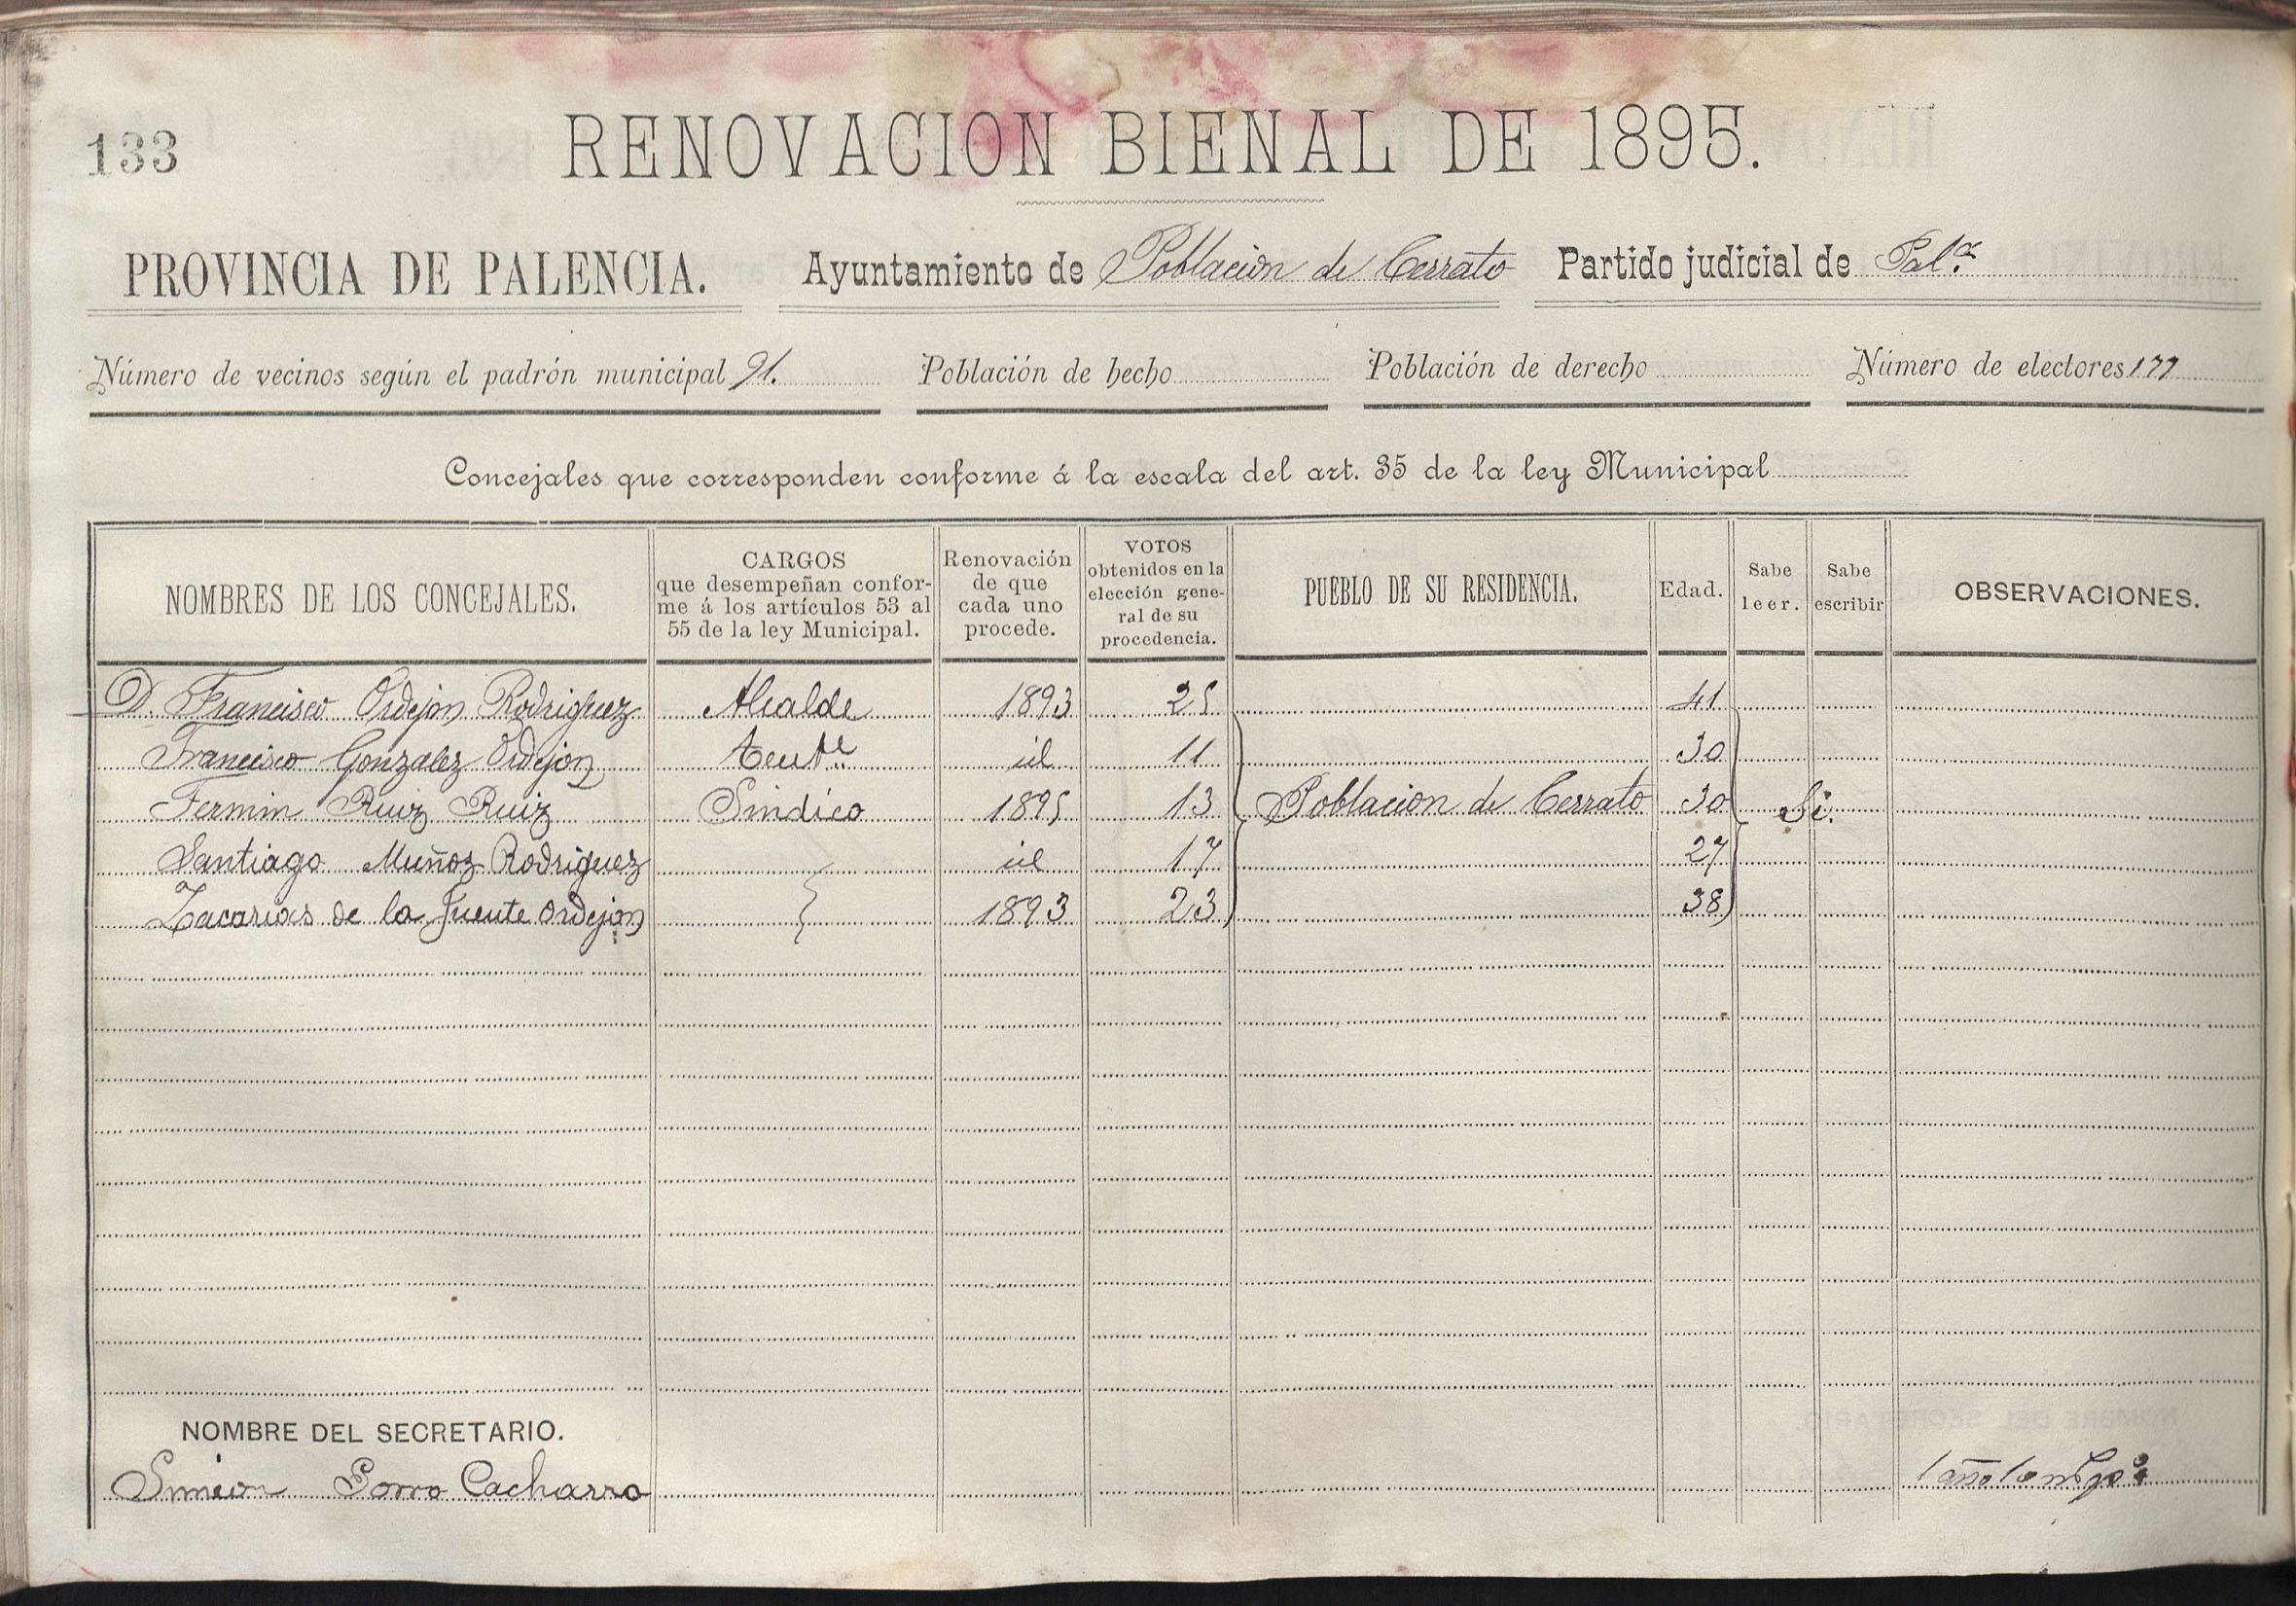 133
RENOVACION BIENAL DE 1895.
PROVINCIA DE PALENCIA. Ayuntamiento de Poblacion de Cerrato Partido judicial de Pal.ª
Número de vecinos según el padrón municipal 91. Población de hecho Población de derecho Número de electores 177
Concejales que corresponden conforme á la escala del art. 35 de la ley Municipal
NOMBRES DE LOS CONCEJALES.
CARGOS
que desempeñan confor-
me á los artículos 53 al
55 de la ley Municipal.
Renovación
de que
cada uno
procede.
VOTOS
obtenidos en la
elección gene-
ral de su
procedencia.
PUEBLO DE SU RESIDENCIA.
Edad.
Sabe
leer.
Sabe
escribir
OBSERVACIONES.
D. Francisco Ordejon Rodriguez Alcalde 1893 25 41
Francisco Gonzalez Ordejon Tent.e id 11 30
Fermin Ruiz Ruiz Sindico 1895 13 Poblacion de Cerrato 30 Si.
Santiago Muñoz Rodriguez id 17 27
Zacarias de la Fuente Ordejon 1893 23 38
NOMBRE DEL SECRETARIO.
Simeon Porro Cacharro